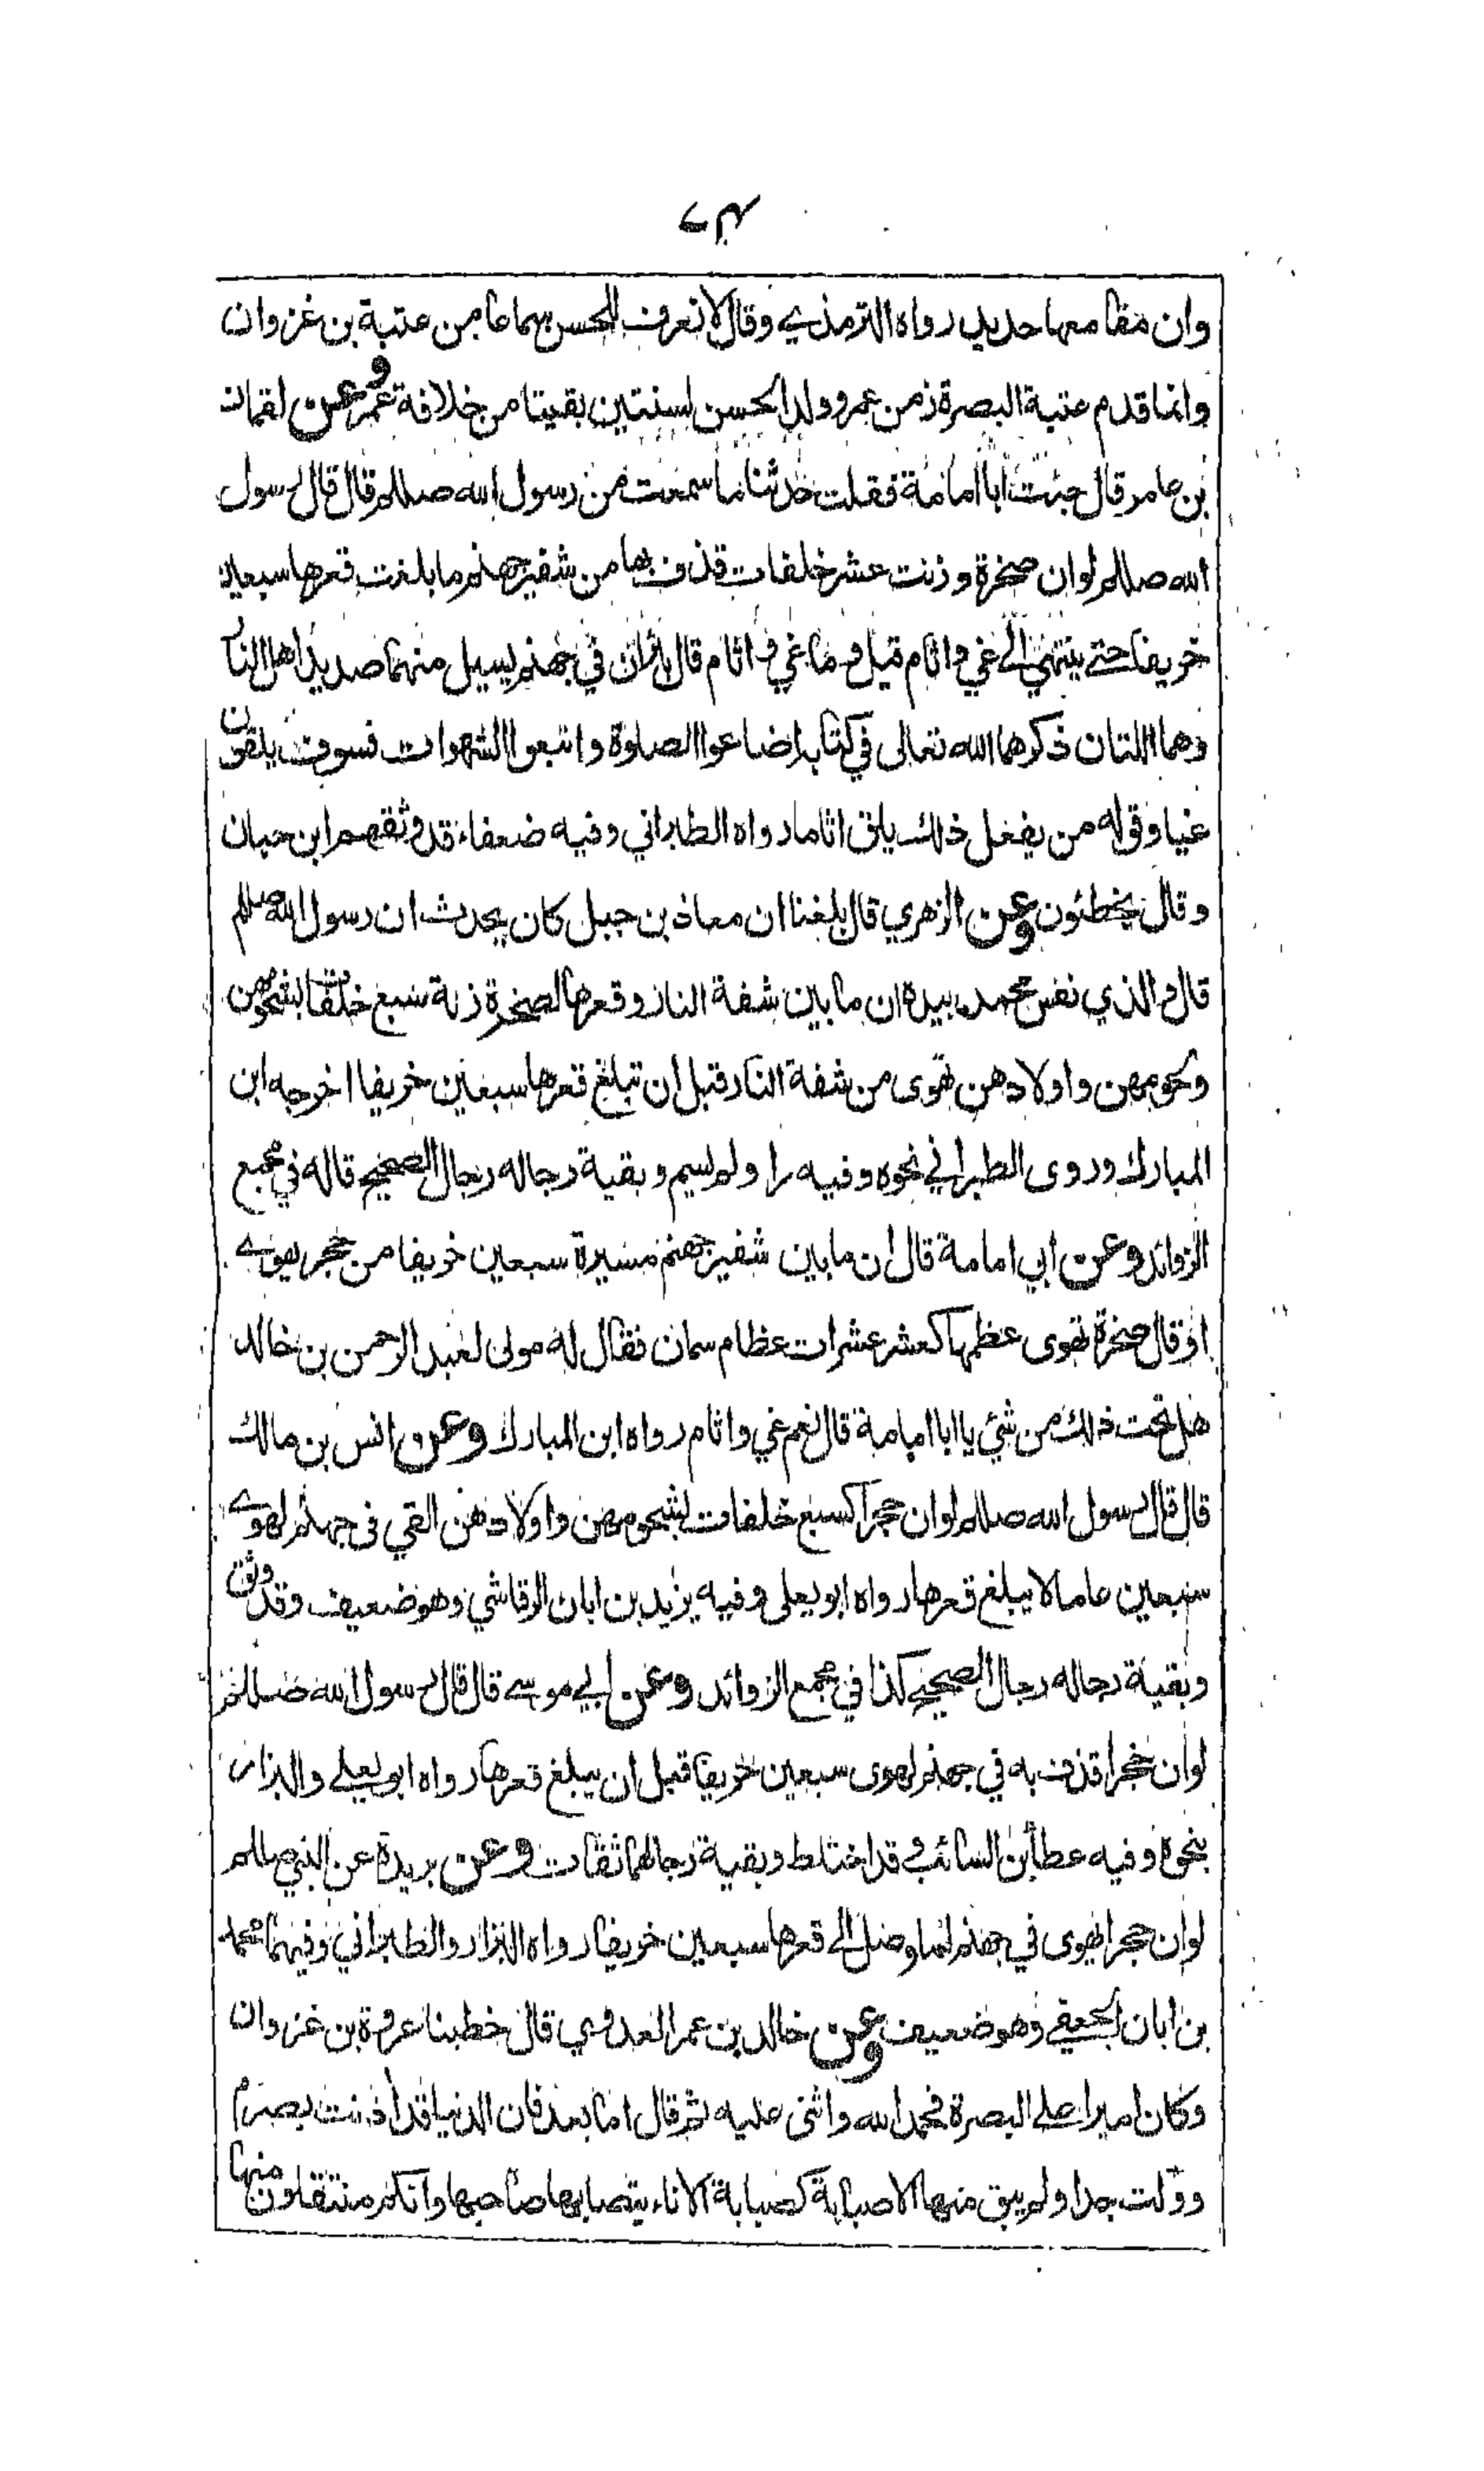 وان مقامعها حديد رواه الترمذي وقال لا نعرف للحسن سماعا من عتبة بن غزوان
وانما قدم عتبة البصرة زمن عمر وولد الحسن لسنتين بقيتا من خلافة عمر وعن لقمان
بن عامر قال جئت ابا امامة فقلت حدثنا ما سمعت من رسول الله صللم قال قال رسول
الله صللم لو ان صخرة وزنت عشر خلفات قذف بها من شفير جهنم ما بلغت قعرها سبعين
خريفا حتى ينتهي الى غي واثام قيل وما غي واثام قال بئران في جهنم يسيل منهما صديد اهل النار
وهما اللتان ذكرهما الله تعالى في كتابه اضاعوا الصلوة واتبعوا الشهوات فسوف يلقون
غيا وقوله من يفعل ذلك يلق اثاما رواه الطبراني وفيه ضعفاء قد وثقهم ابن حبان
وقال يخطئون وعن الزهري قال بلغنا ان معاذ بن جبل كان يحدث ان رسول الله صللم
قال والذي نفس محمد بيده ان ما بين شفة النار وقعرها لصخرة زنة سبع خلفات بشحومهن
ولحومهن واولادهن تهوى من شفة النار قبل ان تبلغ قعرها سبعين خريفا اخرجه ابن
المبارك وروى الطبراني نحوه وفيه راو لم يسم وبقية رجاله رجال الصحيح قاله في مجمع
الزوائد وعن ابي امامة قال ان ما بين شفير جهنم مسيرة سبعين خريفا من حجر يهوي
او قال صخرة تهوى عظمها كعشر عشرات عظام سمان فقال له مولى لعبد الرحمن بن خالد
هل تحت ذلك من شئ يا ابا امامة قال نعم غي واثام رواه ابن المبارك وعن انس بن مالك
قال قال رسول الله صللم لو ان حجرا كسبع خلفات بشحومهن واولادهن القي فى جهنم لهوى
سبعين عاما لا يبلغ قعرها رواه ابو يعلى وفيه يزيد بن ابان الرقاشي وهو ضعيف وقد وثق
وبقية رجاله رجال الصحيح كذا في مجمع الزوائد وعن ابي موسى قال قال رسول الله صللم
لو ان حجرا قذف به في جهنم لهوى سبعين خريفا قبل ان يبلغ قعرها رواه ابو يعلى والبزار
بنحوه وفيه عطاء بن السائب وقد اختلط وبقية رجالهما ثقات وعن بريدة عن النبي صللم
لو ان حجرا يهوى في جهنم لما وصل الى قعرها سبعين خريفا رواه البزار والطبراني وفيهما محمد
بن ابان الجعفي وهو ضعيف وعن خالد بن عمر العدوي قال خطبنا عروة بن غزوان
وكان اميرا على البصرة فحمد الله واثنى عليه ثم قال اما بعد فان الدنيا قد اذنت بصرم
وولت جدا ولم يبق منها الا صبابة كصبابة الاناء يتصابها صاحبها وانكم منتقلون منها